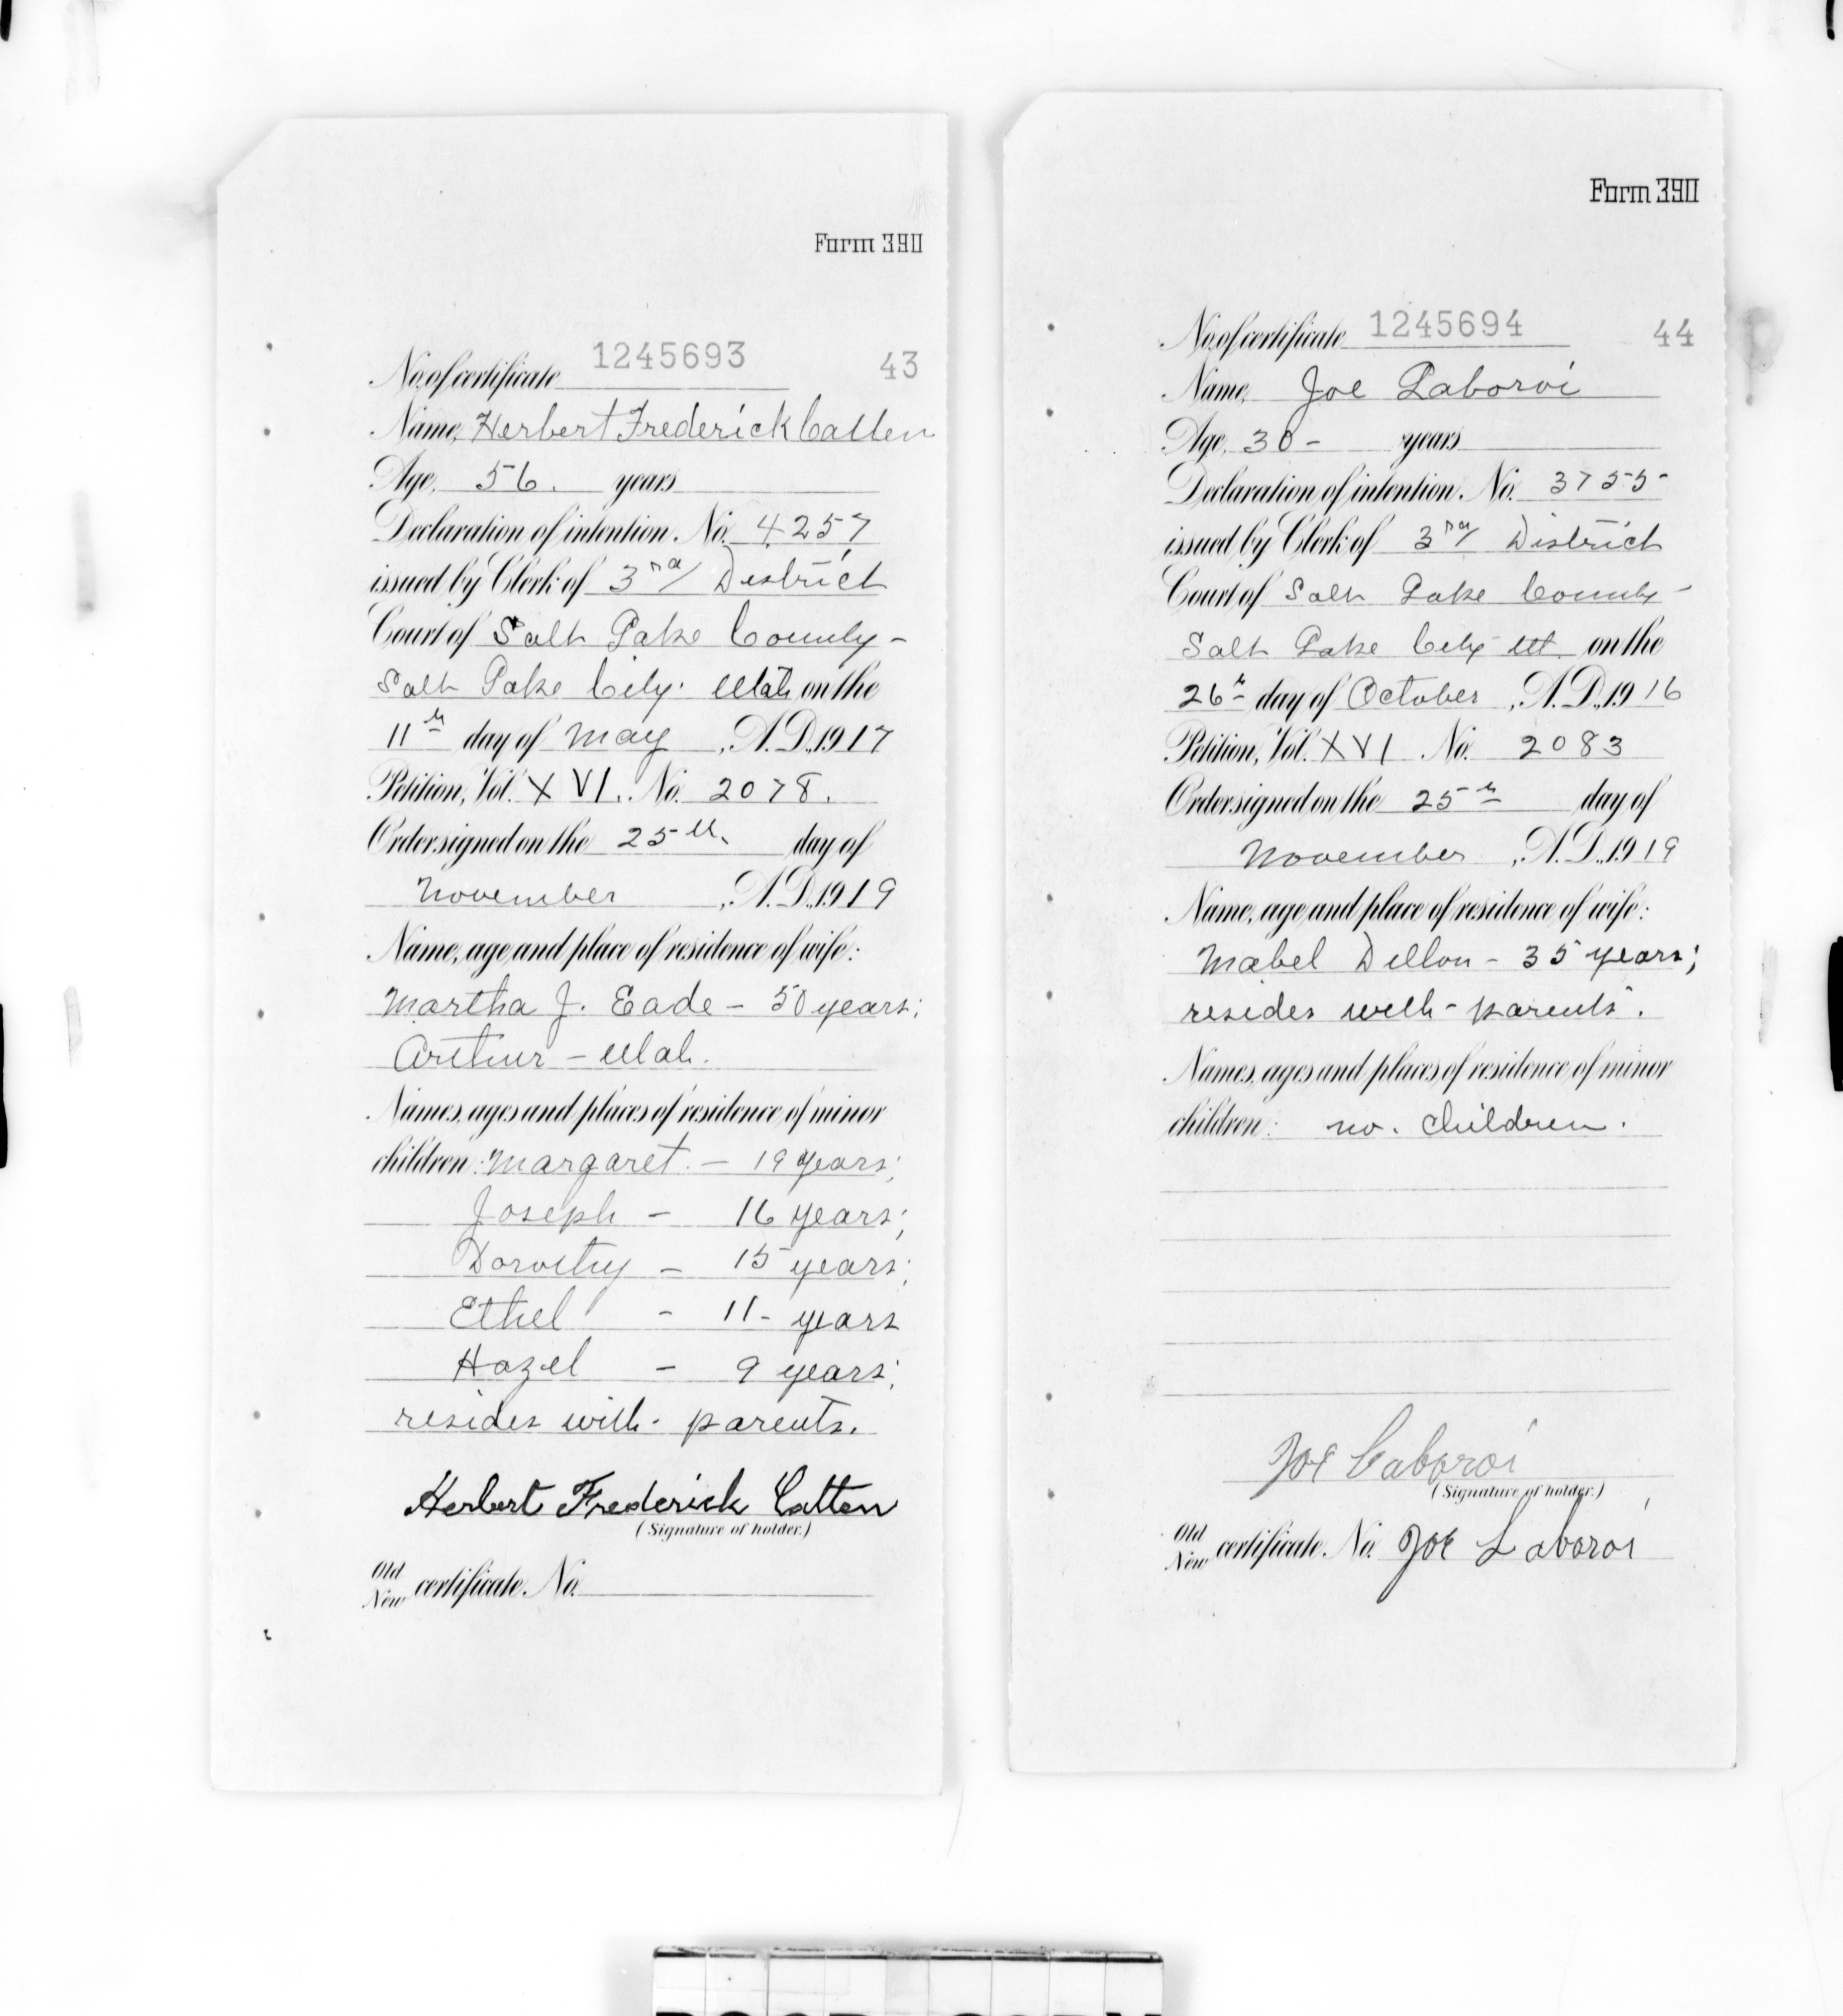 Form 390
No. of certificate 1245693 43
Name, Herbert Frederick Catten
Age, 56. years
Declaration of intention. No. 4257
issued by Clerk of 3rd District
Court of Salt Lake County -
Salt Lake City. Utah on the
11th day of May, A.D., 1917
Petition, Vol. XVI. No. 2078.
Order signed on the 25th. day of
November, A.D., 1919
Name, age and place of residence of wife:
Martha J. Eade - 50 years;
Arthur - Utah.
Names, ages and places of residence of minor
children: Margaret. - 19 years;
Joseph - 16 years;
Dorothy - 15 years;
Ethel - 11 - years
Hazel - 9 years;
resides with - parents.
Herbert Frederick Catten
(Signature of holder.)
Old
New certificate. No.
Form 390
No. of certificate 1245694 44
Name, Joe Laboroi
Age, 30 - years
Declaration of intention. No. 3755-
issued by Clerk of 3rd District
Court of Salt Lake County -
Salt Lake City Ut. on the
26th day of October, A.D., 1916
Petition, Vol. XVI No. 2083
Order signed on the 25th day of
November, A.D., 1919
Name, age and place of residence of wife:
Mabel Dillon - 35 years;
resides with - parents.
Names, ages and places of residence of minor
children: no. children.
Joe Laboroi
(Signature of holder.)
Old
New certificate. No. Joe Laboroi